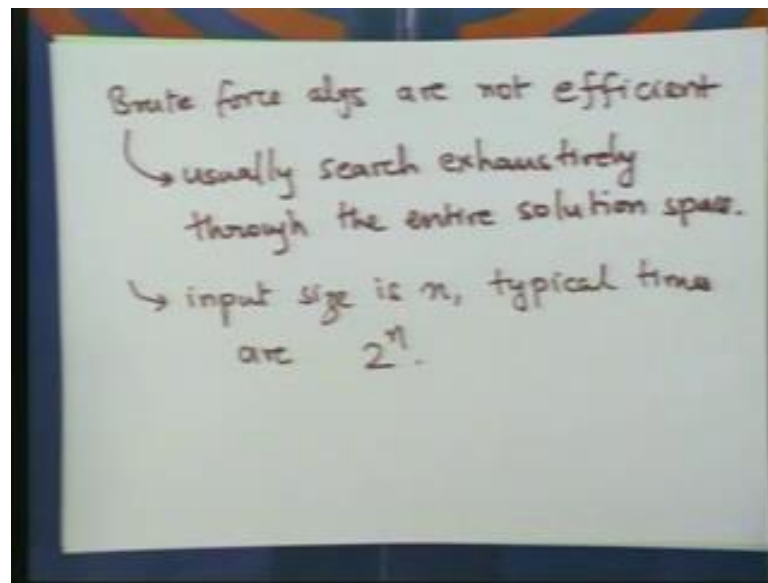 Brute force algs are not efficient
usually search exhaustively
through the entire solution space.
input size is n, typical times
are 2ⁿ.